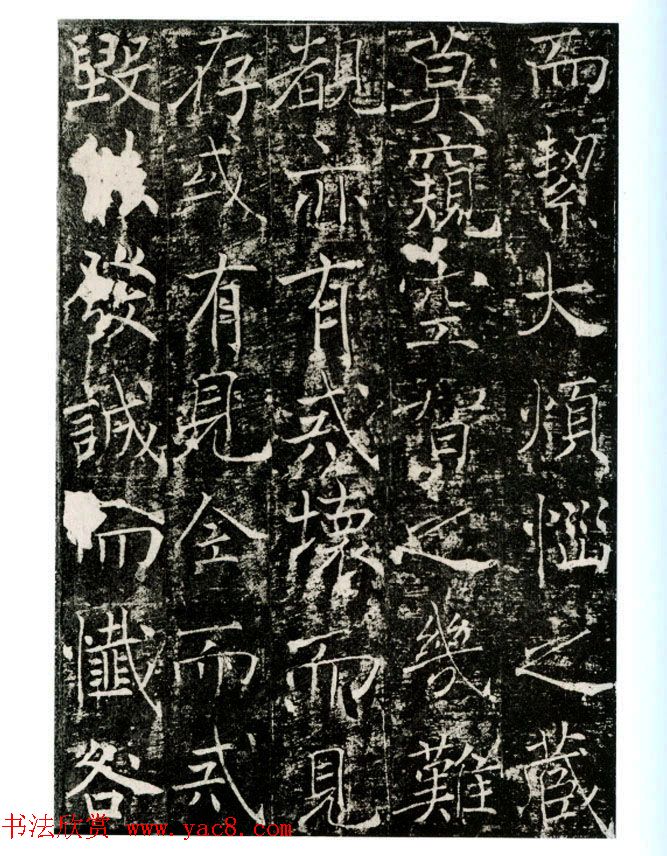 而繫大煩惱之藏
莫窺聖智之幾難
覩亦有壞而見
存或有見全而
毀發誠而懺咎
书法欣赏 www.yac8.com